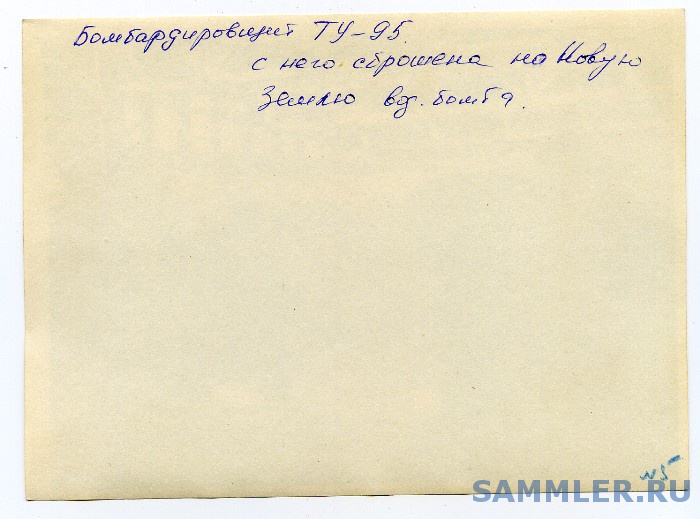 Бомбардировщик ТУ-95.
с него сброшена на Новую
Землю вод. бомба.
№5
SAMMLER.RU